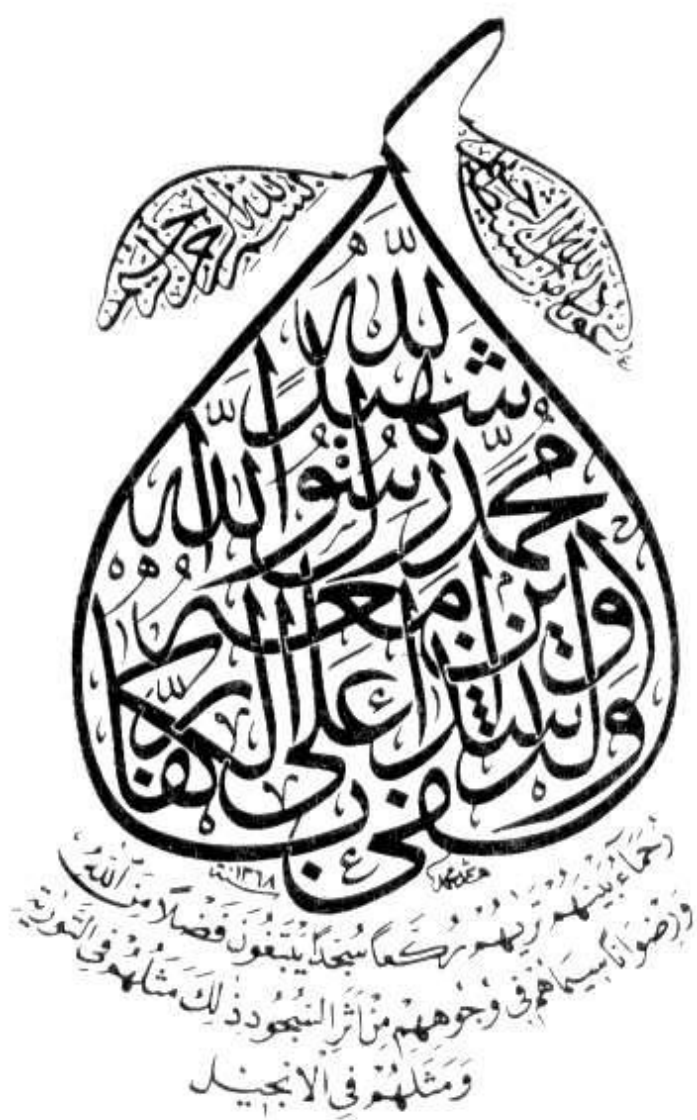 أعوذ بالله من الشيطان الرجيم
بسم الله الرحمن الرحيم
وكفى بالله شهيدا
محمد رسول الله
والذين معه
أشداء على الكفار
هاشم محمد
سنة ١٣٦٨
رُحَمَاءُ بَيْنَهُمْ تَرٰيهُمْ رُكَّعًا سُجَّدًا يَبْتَغُونَ فَضْلًا مِنَ اللّٰهِ
وَرِضْوَانًا سِيمَاهُمْ فِي وُجُوهِهِمْ مِنْ أَثَرِ السُّجُودِ ذٰلِكَ مَثَلُهُمْ فِي التَّوْرٰيةِ
وَمَثَلُهُمْ فِي الْانْجِيلِ